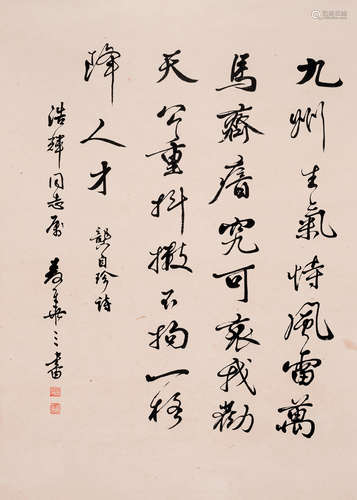 九州生氣恃風雷萬
馬齊瘖究可哀我勸
天公重抖擻不拘一格
降人才
龔自珍詩
浩輝同志屬
書